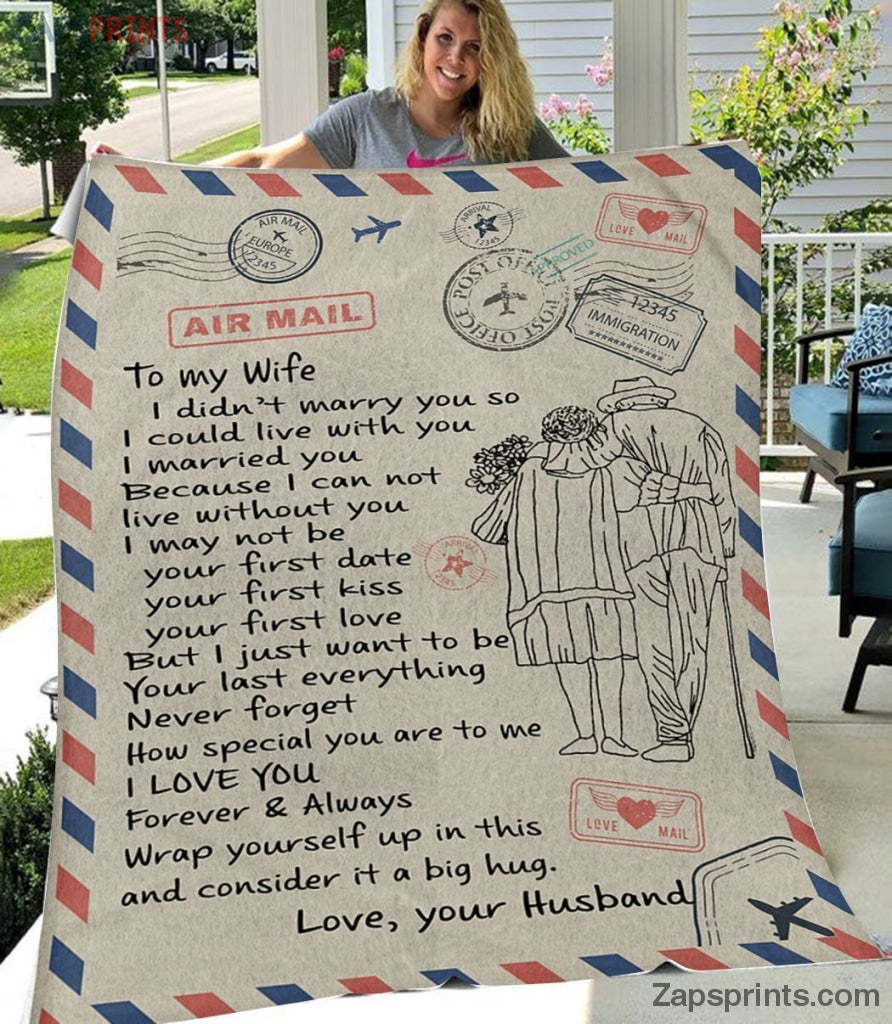 PRINTS
AIR MAIL
EUROPE
12345
ARRIVAL
12345
LOVE MAIL
APPROVED
POST OFFICE
POST OFFICE
12345
IMMIGRATION
AIR MAIL
To my Wife
I didn't marry you so
I could live with you
I married you
Because I can not
live without you
I may not be
your first date
your first kiss
your first love
ARRIVAL
2345
But I just want to be
Your last everything
Never forget
How special you are to me
I LOVE YOU
Forever & Always
Wrap yourself up in this
and consider it a big hug.
LOVE MAIL
Love, your Husband
Zapsprints.com